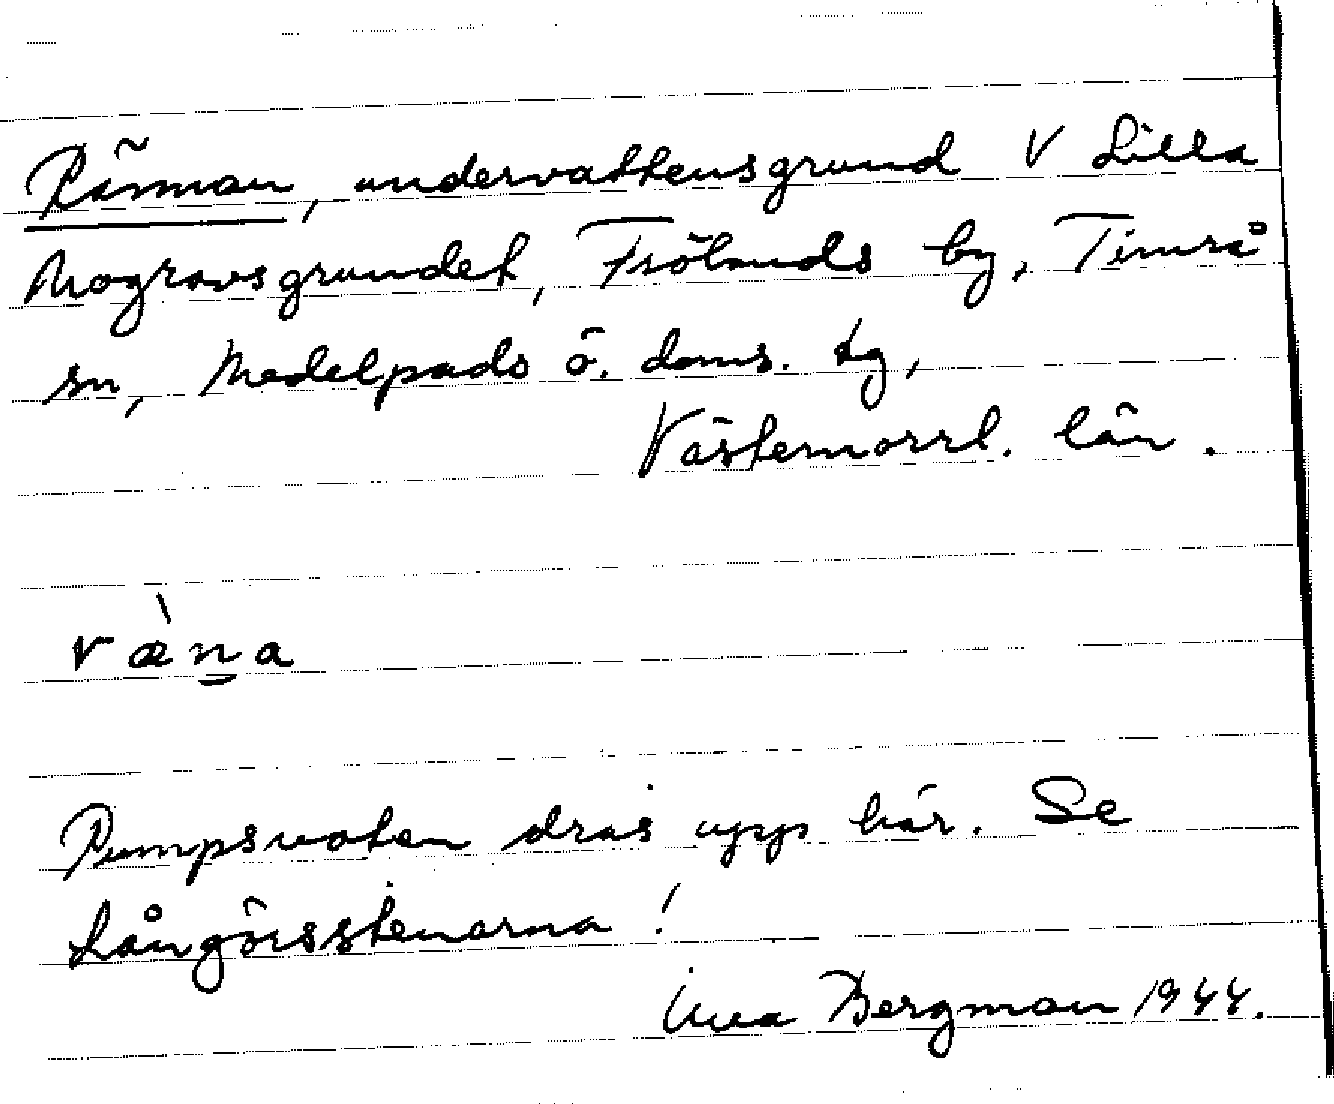 Rännan, undervattensgrund V Lilla
Mogravsgrundet, Frölands by, Timrå
sn, Medelpads ö. doms. tg,
Västernorrl. län.
ræ̀n̲a
Pumpsnoten dras upp här. Se
Långörsstenarna!
Bergman 1944.